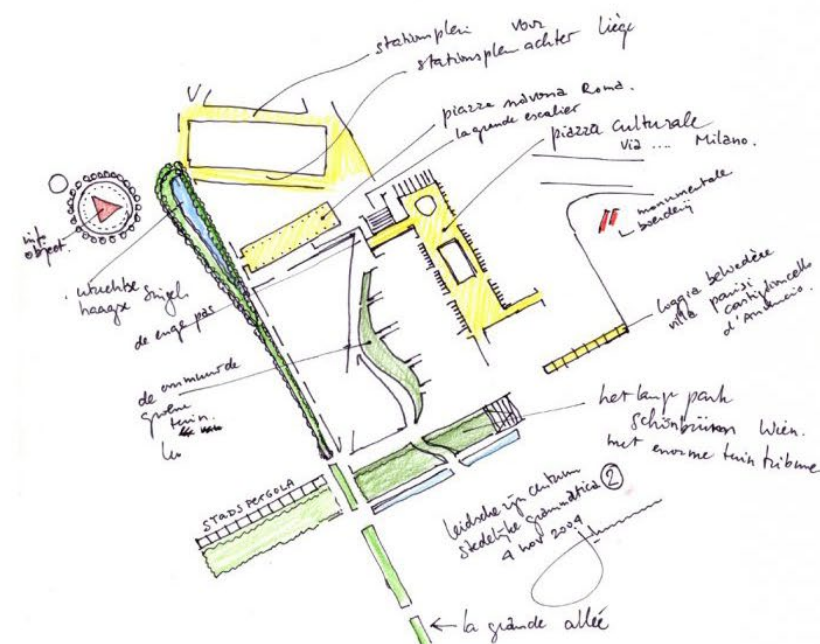 stationsplein voor
stationsplein achter Liège
piazza navona Roma.
la grande escalier
piazza culturale
via .... Milano.
monumentale
boerderij
info
object.
utrechtse
haagse singel
de enge pas
loggia belvedère
villa parisi
castiglioncello
d'
de ommuurde
groene
tuin.
het lange park
schönbrünn Wien.
met enorme tuin tribune
STADSPERGOLA
leidsche rijn centrum
stedelijke grammatica 2
4 nov 2004
← la grande allée